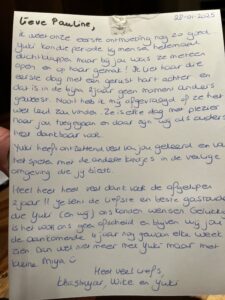 22-01-2025
Lieve Pauline,
Ik weet onze eerste ontmoeting nog zo goed.
Yuki kon die periode bij mensen helemaal
dichtklappen maar bij jou was ze meteen
open en op haar gemak! Ik liet haar die
eerste dag met een gerust hart achter en
dat is in de bijna 2 jaar geen moment anders
geweest. Nooit heb ik mij afgevraagd of ze het
wel leuk zou vinden. Ze is elke dag met plezier
naar jou toe gegaan en daar zijn wij als ouders
heel dankbaar voor.
Yuki heeft ontzettend veel van jou geleerd en van
het spelen met de andere kindjes in de veilige
omgeving die jij biedt.
Heel heel heel veel dank voor de afgelopen
2 jaar!! Je bent de liefste en beste gastouder
die Yuki (en wij) ons konden wensen. Gelukkig
is het voor ons geen afscheid en blijven wij jou
de aankomende 4 jaar nog gewoon elke week
zien. Dan wel niet meer met Yuki maar met
kleine Miya
Heel veel liefs,
en Yuki